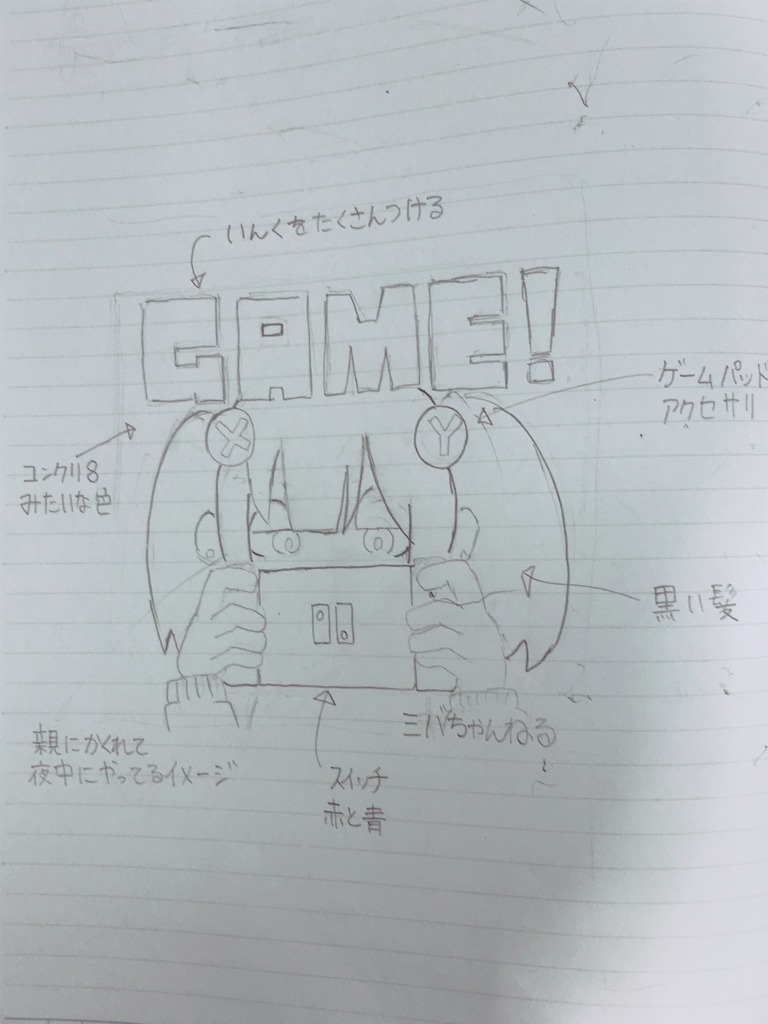 いんくをたくさんつける
GAME!
ゲームパッド
アクセサリ
X
Y
コンクリ8
みたいな色
黒い髪
ミバちゃんねる
親にかくれて
夜中にやってるイメージ
スイッチ
赤と青